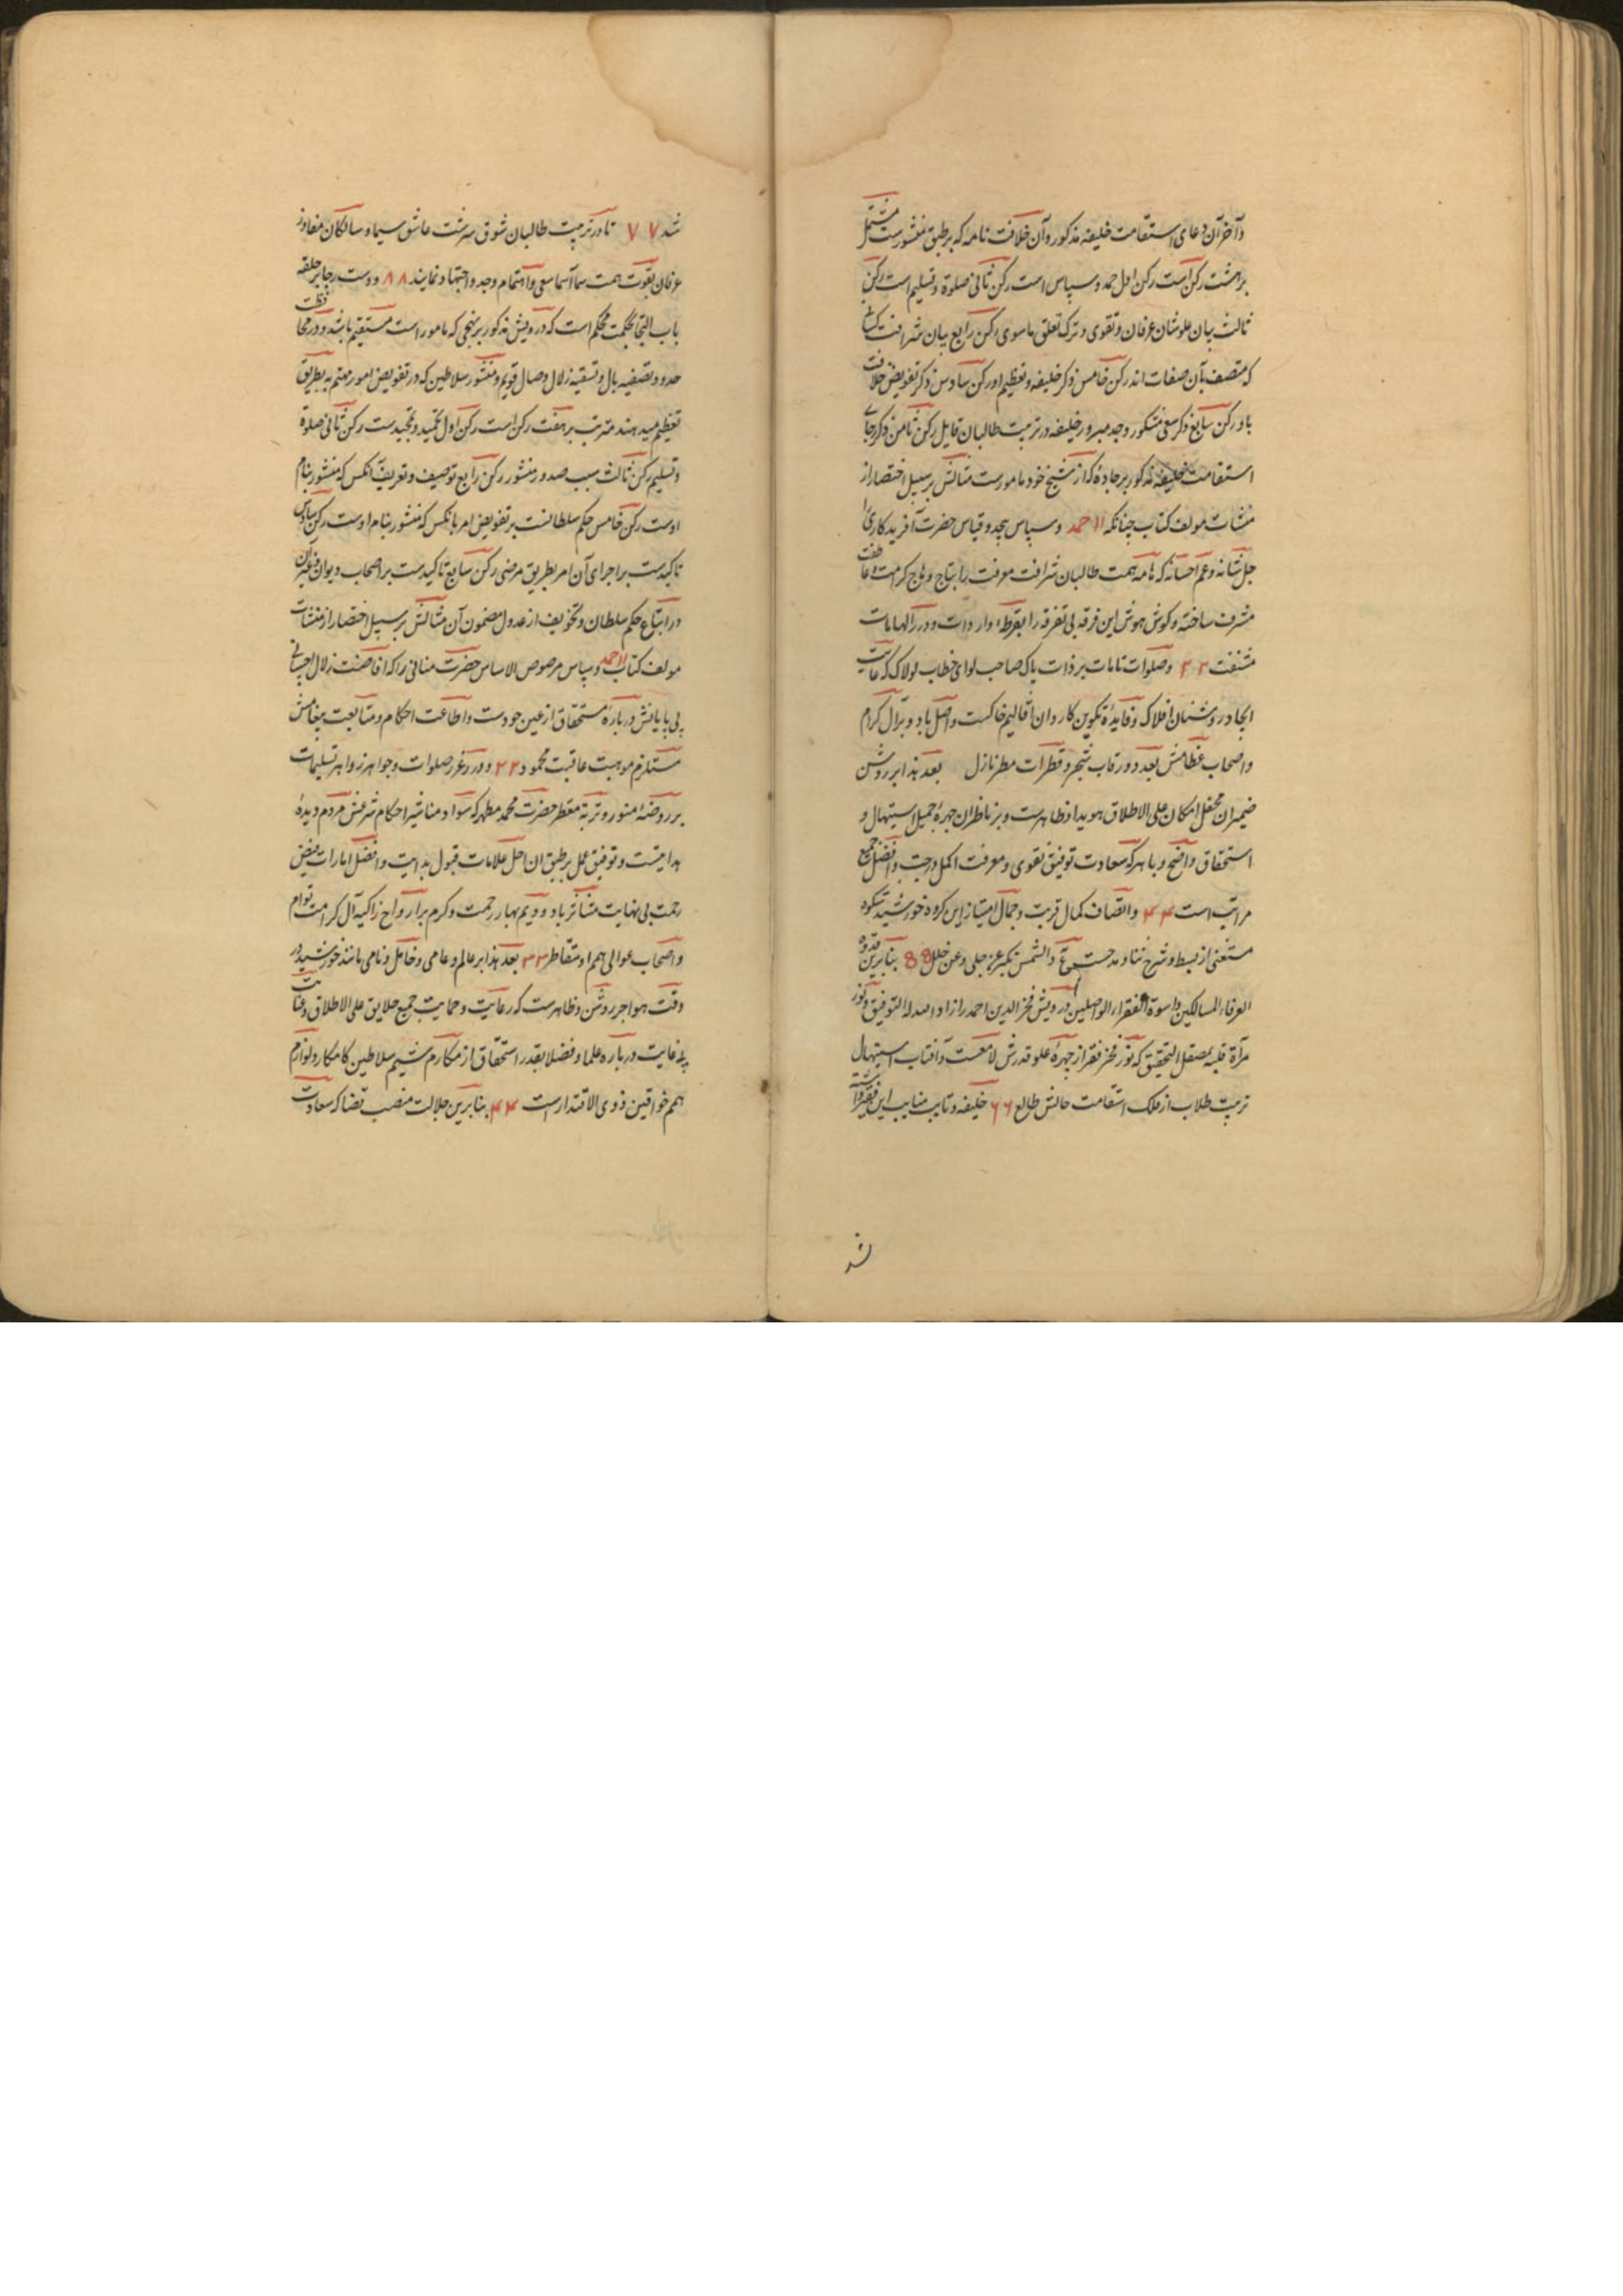 و آخر آن دعای استقامت خلیفه مذکور و آن خلافت نامه که بر طبق منشورست مشتمل
بر هشت رکن است رکن اول حمد و سپاس است رکن ثانی صلوة و تسلیم است رکن
ثالث بیان علوشان عرفان و تقوی و ترک تعلق ماسوی رکن رابع بیان شرافت کسانی
که متصف بآن صفات اند رکن خامس ذکر خلیفه و تعظیم او رکن سادس ذکر تفویض خلافت
باو رکن سابع ذکر سعی مشکور و جد مبرور خلیفه در تربیت طالبان قابل رکن ثامن ذکر رجای
استقامت خلیفه مذکور بر جاده که از شیخ خود مامورست مثالش بر سبیل اختصار از
منشات مولف کتاب چنانکه ۱۱ حمد و سپاس بیحد و قیاس حضرت آفریدکاری را
جل شانه و عم احسانه که هامه همت طالبان شرافت معرفت را بتاج وهاج کرامت و عاطفت
مشرف ساخته و کوش هوش این فرقه بی تفرقه را بقرطه واردات و درر الهامات
مشنفت ۲۲ و صلوات تامات بر ذات پاک صاحب لوای خطاب لولاک که غایت
ایجاد روشنان افلاک و فایده تکوین کاروان اقالیم خاکست واصل باد و بر آل کرام
و اصحاب عظامش بعدد ورقات شجر و قطرات مطر نازل بعد هذا بر روشن
ضمیران محفل امکان علی الاطلاق هویدا و ظاهرست و بر ناظران چهره جمیل استیهال و
استحقاق واضح و باهر که سعادت توفیق تقوی و معرفت اکمل درجت و افضل جمیع
مراتب است ۴۴ و اتصاف کمال قربت و جمال امتیاز این کروه خورشید شکوه
مستغنی از بسط و شرح ثنا و مدحست ع والشمس تکبر عن حلی و عن حلل 88 بنابرین قدوه
العرفاء السالکین و اسوة الفقراء الواصلین درویش فخر الدین احمد را زاد الله له التوفیق و نور
مرآة قلبه بمصقل التحقیق که نور فخر فقر از چهره علو قدرش لامعست و آفتاب استیهال
تربیت طلاب از فلک استقامت حالش طالع ۶۶ خلیفه و نایب مناب این فقیر دانسته
شد
شد ۷۷ تا در تربیت طالبان شوق سرشت عاشق سیما و سالکان مفاوز
عرفان بقوت همت سما آسا سعی و اهتمام و جد و اجتهاد نمایند ۸۸ و دست رجا بر حلقه
باب التجا بحکمت محکم است که درویش مذکور بر نهجی که مامور است مستقیم باشد و در محافظت
حدود و تصفیه بال و تسقیه زلال وصال قویم و منشور سلاطین که در تفویض امور مهم به بطریق
تعظیم میدهند مترتب بر هفت رکن است رکن اول تحمید و تمجیدست رکن ثانی صلوة
و تسلیم رکن ثالث سبب صدور منشور رکن رابع توصیف و تعریف آنکس که منشور بنام
اوست رکن خامس حکم سلطانست بر تفویض امر بآنکس که منشور بنام اوست رکن سادس
تاکیدست بر اجرای آن امر بطریق مرضی رکن سابع تاکیدست بر اصحاب دیوان و غیر آن
در اتباع حکم سلطان و تخویف از عدول مضمون آن مثالش بر سبیل اختصار از منشآت
مولف کتاب ۱۱ حمد و سپاس مرصوص الاساس حضرت منانی را که افاضت زلال احسان
بی پایانش در باره مستحقان از عین جودست و اطاعت احکام و متابعت پیغامش
مستلزم موهبت عاقبت محمود ۲۲ و درر غرر صلوات و جواهر زواهر تسلیمات
بر روضه منور و تربة معطر حضرت محمد مطهر که سواد مناشیر احکام شرعش مردم دیده
هدایتست و توفیق عمل بر طبق ان اجل علامات قبول بدایت و افضل امارات فیض
رحمت بی نهایت متناثر باد و دیم بهار رحمت و کرم بر ارواح زاکیه آل کرامت توام
و اصحاب عوالی همم او متقاطر ۳۳ بعد هذا بر عالم و عامی و خامل و نامی مانند خورشید در
وقت هواجر روشن و ظاهرست که رعایت و حمایت جمیع خلایق علی الاطلاق و عنایت
بی غایت در باره علما و فضلا بقدر استحقاق از مکارم شیم سلاطین کامکار و لوازم
همم خواقین ذوی الاقتدارست ۴۴ بنابرین جلالت منصب قضا که سعادت